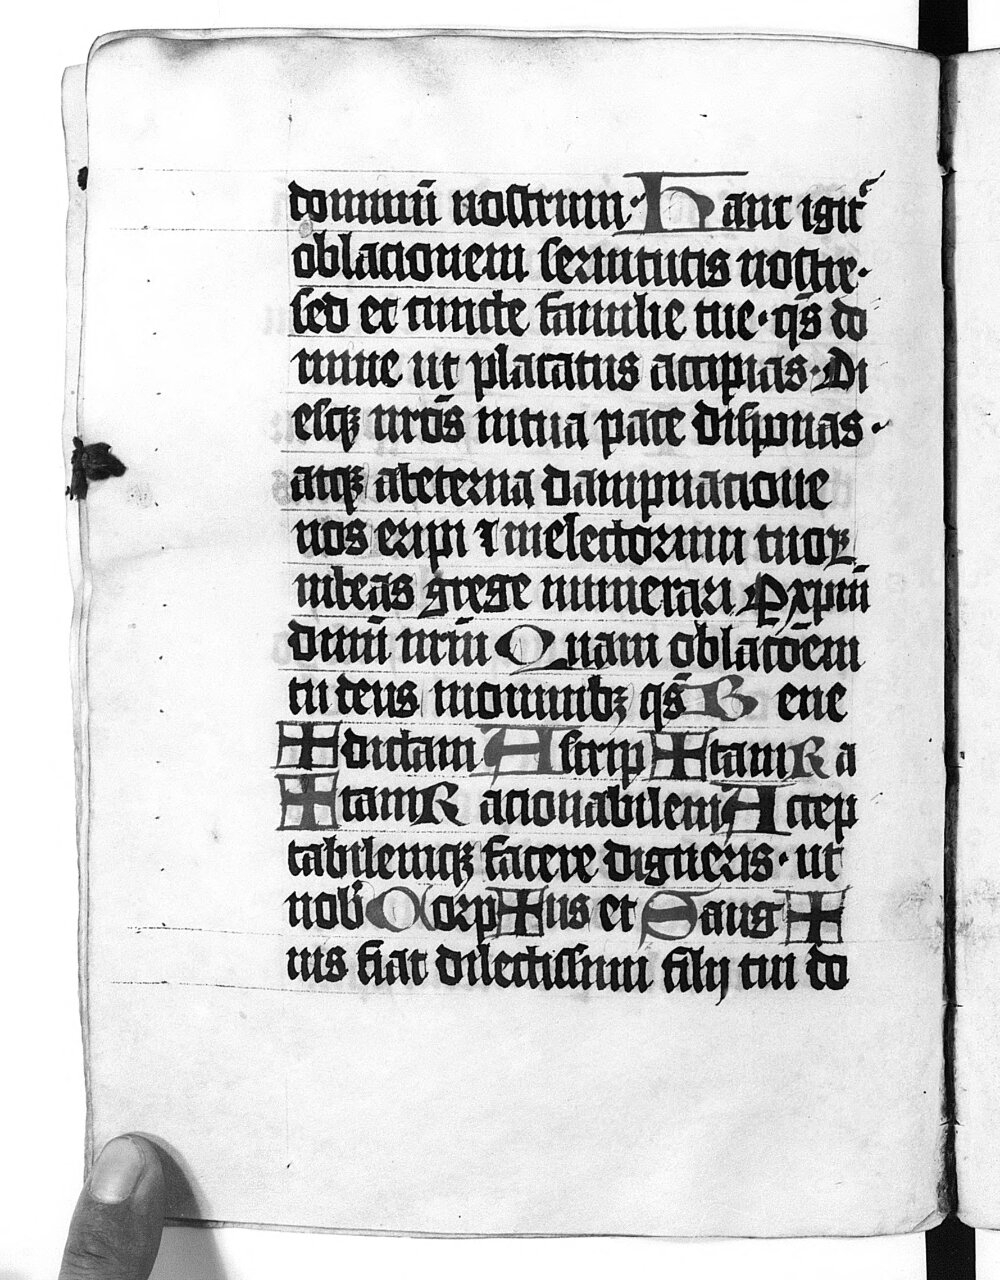 dominū nostrum · Hanc igit᷑
oblacionem seruitutis nostre ·
sed et cuncte familie tue · qs̄ do
mine ut placatus accipias · Di
esqꝫ nrōs in tua pace disponas ·
atqꝫ abeterna dampnacione
nos eripi ⁊ inelectorum tuoꝝ
iubeas grege numerari Ꝑ xpm̄
dnm̄ nrm̄ Quam oblacōem
tu deus inomnibꝫ qs̄ B ene
✠ dictam A scrip ✠ tam R a
✠ tam R acionabilem Accep
tabilemqꝫ facere digneris · ut
nob̄ Corp ✠ us et Sang ✠
uis fiat dilectissimi filij tui do